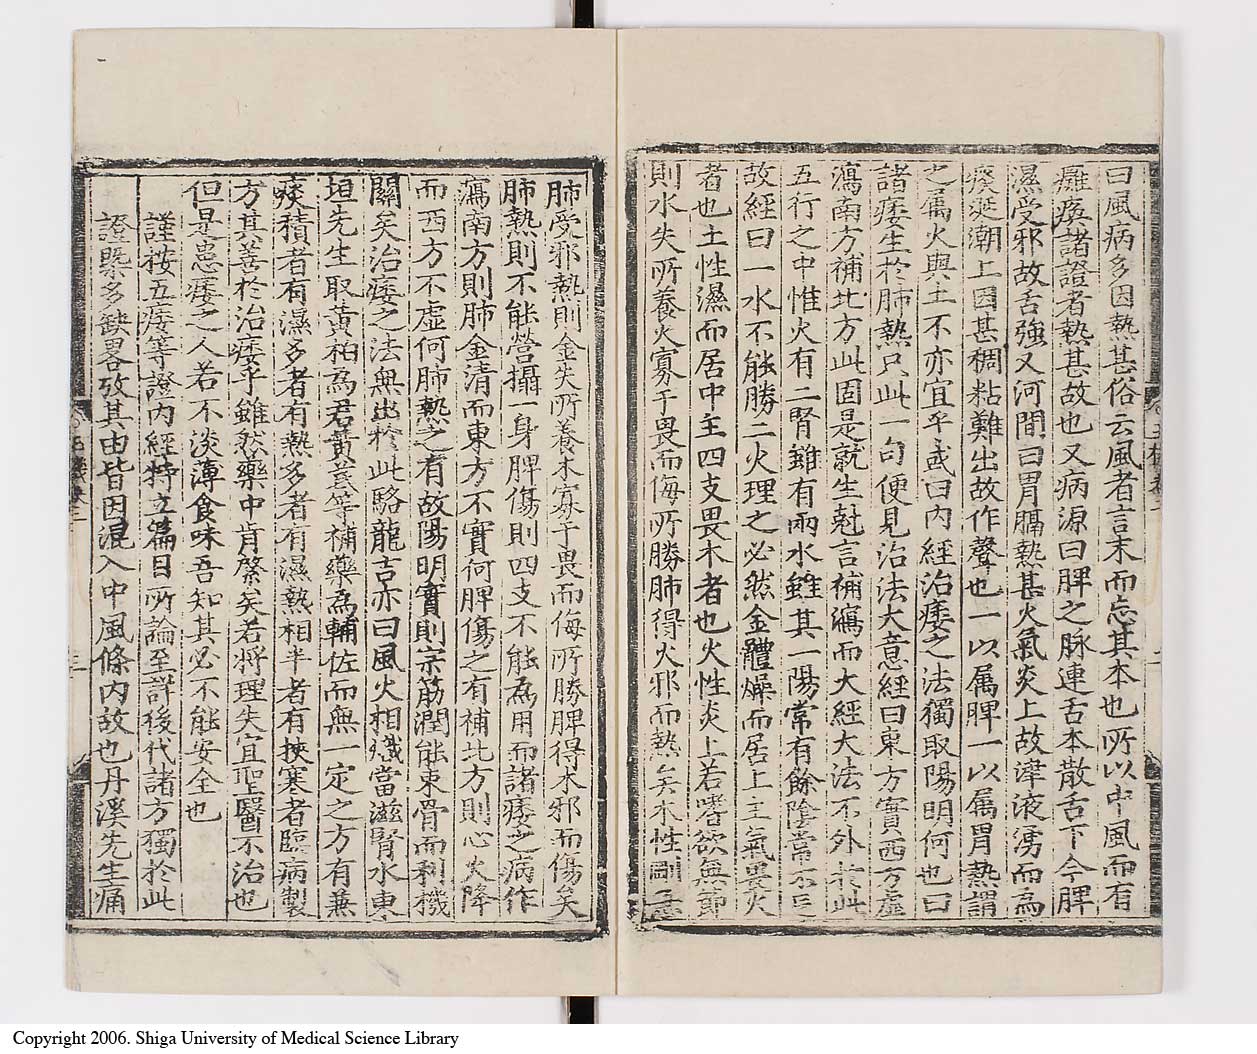 曰風病多因熱甚俗云風者言末而忘其本也所以中風而有
癱瘓諸證者熱甚故也又病源曰脾之脉連舌本散舌下今脾
濕受邪故舌強又河間曰胃膈熱甚火氣炎上故津液湧而為
痰涎潮上因甚稠粘難出故作聲也一以属脾一以属胃熱謂
之属火與土不亦宜乎或曰內經治痿之法獨取陽明何也曰
諸痿生於肺熱只此一句便見治法大意經曰東方實西方虛
瀉南方補北方此固是就生尅言補瀉而大經大法不外於此
五行之中惟火有二腎雖有兩水雖其一陽常有餘陰常不足
故經曰一水不能勝二火理之必然金體燥而居上主氣畏火
者也土性濕而居中主四支畏木者也火性炎上若嗜欲無節
則水失所養火寡于畏而侮所勝肺得火邪而熱矣木性剛急
肺受邪熱則金失所養木寡于畏而侮所勝脾得木邪而傷矣
肺熱則不能營攝一身脾傷則四支不能為用而諸痿之病作
瀉南方則肺金清而東方不實何脾傷之有補北方則心火降
而西方不虛何肺熱之有故陽明實則宗筋潤能束骨而利機
關矣治痿之法無出於此駱龍吉亦曰風火相熾當滋腎水東
垣先生取黃柏為君黃芪等補藥為輔佐而無一定之方有兼
痰積者有濕多者有熱多者有濕熱相半者有挾寒者臨病製
方其善於治痿乎雖然藥中肯綮矣若將理失宜聖醫不治也
但是患痿之人若不淡薄食味吾知其必不能安全也
謹按五痿等證內經特立篇目所論至詳後代諸方獨於此
證槩多缺畧攷其由皆因混入中風條內故也丹溪先生痛
三